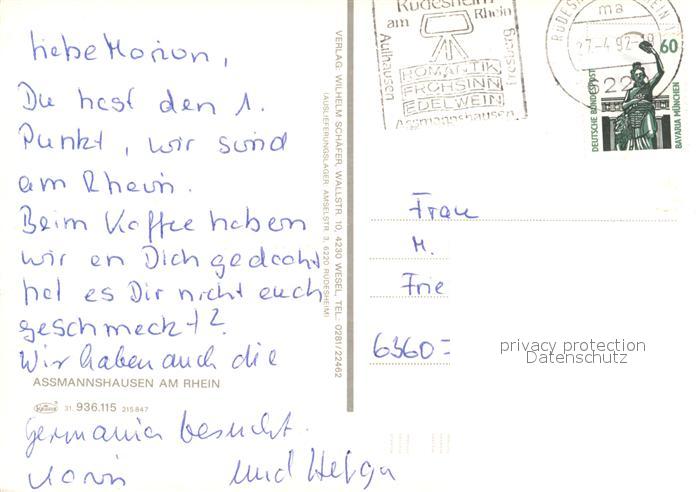 Liebe Marion,
Du hast den 1.
Punkt, wir sind
am Rhein.
Beim Kaffee haben
wir an Dich gedacht
hat es Dir nicht auch
geschmeckt?
Wir haben auch die
ASSMANNSHAUSEN AM RHEIN
Krüger 31. 936.115 215847
Germania besucht.
Karin und Helga
VERLAG: WILHELM SCHÄFER, WALLSTR. 10, 4230 WESEL, TEL. 0281/22462
(AUSLIEFERUNGSLAGER: AMSELSTR. 3, 6220 RÜDESHEIM)
Rüdesheim
am Rhein
Aulhausen
Presberg
ROMANTIK
FROHSINN
EDELWEIN
Assmannshausen
RÜDESHEIM AM RHEIN
ma
27.-4.92-18
622
60
DEUTSCHE BUNDESPOST
BAVARIA MÜNCHEN
Frau
M.
Frie
6360
privacy protection
Datenschutz